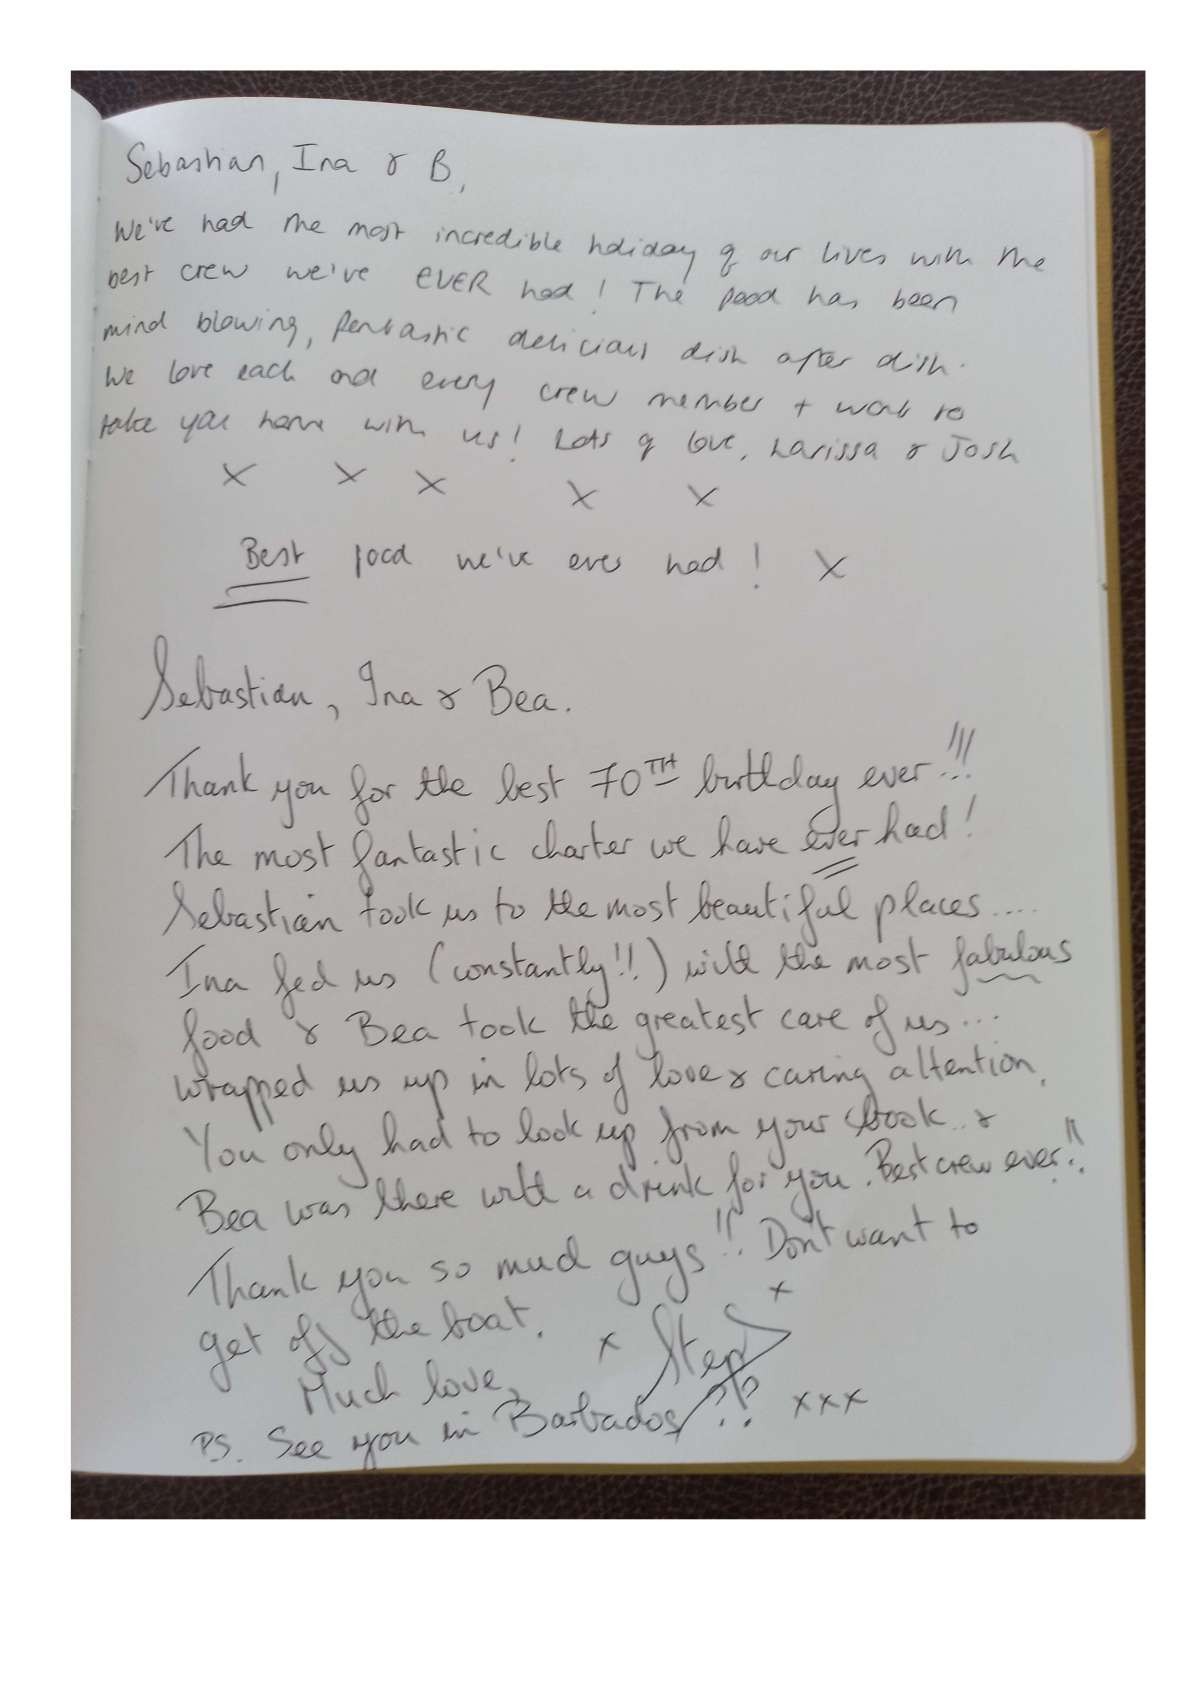 Sebastian, Ina & B,
We've had the most incredible holiday of our lives with the
best crew we've EVER had! The food has been
mind blowing, fantastic delicious dish after dish.
We love each and every crew member + want to
take you home with us! Lots of love, Larissa & Josh
X X X X X
Best food we've ever had! X
Sebastian, Ina & Bea.
Thank you for the best 70TH birthday ever!!!
The most fantastic charter we have ever had!
Sebastian took us to the most beautiful places....
Ina fed us (constantly!!) with the most fabulous
food & Bea took the greatest care of us...
wrapped us up in lots of love & caring attention.
You only had to look up from your book.. &
Bea was there with a drink for you. Best crew ever!!
Thank you so much guys!! Don't want to
get off the boat. x
Much love, x Steph
PS. See you in Barbados?!? xxx